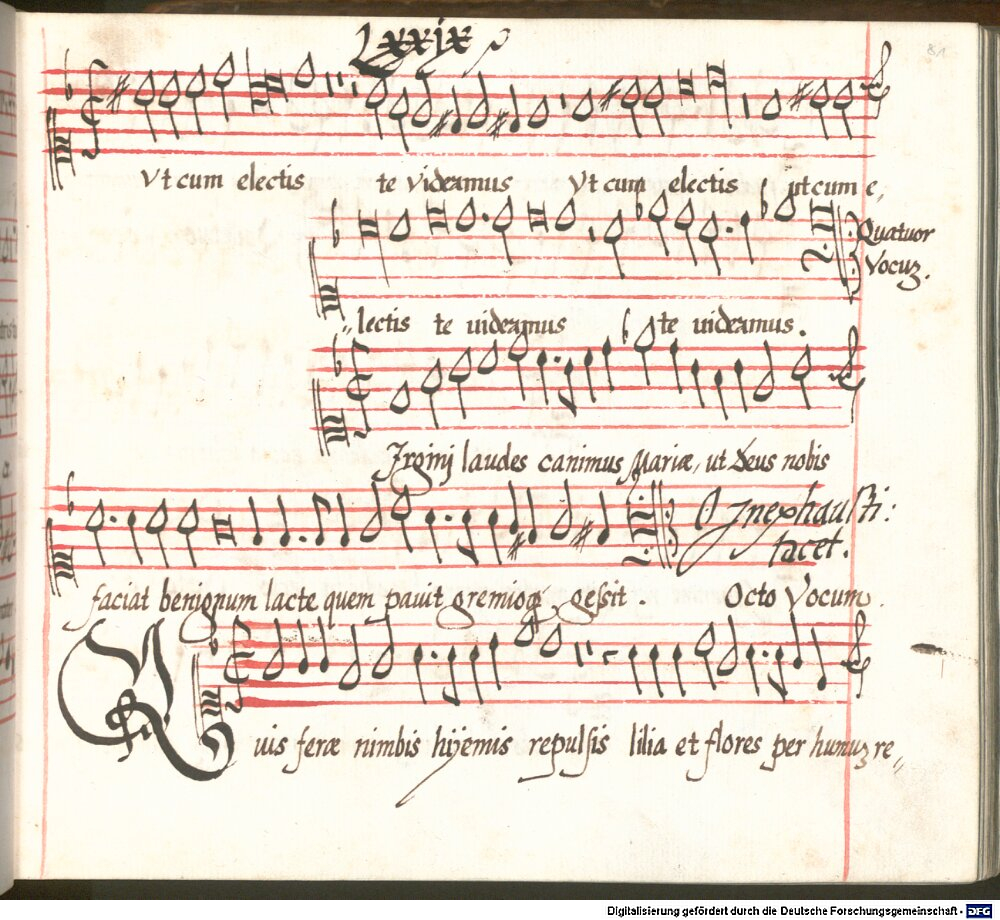 Lxxix
81
Vt cum electis te videamus Vt cum electis ut cum e„
Quatuor
Vocuʒ.
„lectis te uideamus te uideamus.
Irginij laudes canimus Mariæ, ut Deus nobis
O Inexhausti:
tacet.
faciat benignum lacte quem pauit gremioq gessit. Octo Vocum.
Quis feræ nimbis hijemis repulsis lilia et flores per humuʒ re„
Digitalisierung gefördert durch die Deutsche Forschungsgemeinschaft - DFG